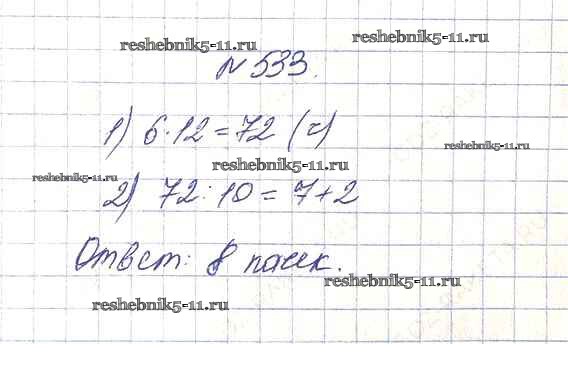 reshebnik5-11.ru
reshebnik5-11.ru
№ 533.
1) 6·12=72 (г)
reshebnik5-11.ru
reshebnik5-11.ru
reshebnik5-11.ru
2) 72:10=7+2
Ответ: 8 пачек.
reshebnik5-11.ru
reshebnik5-11.ru